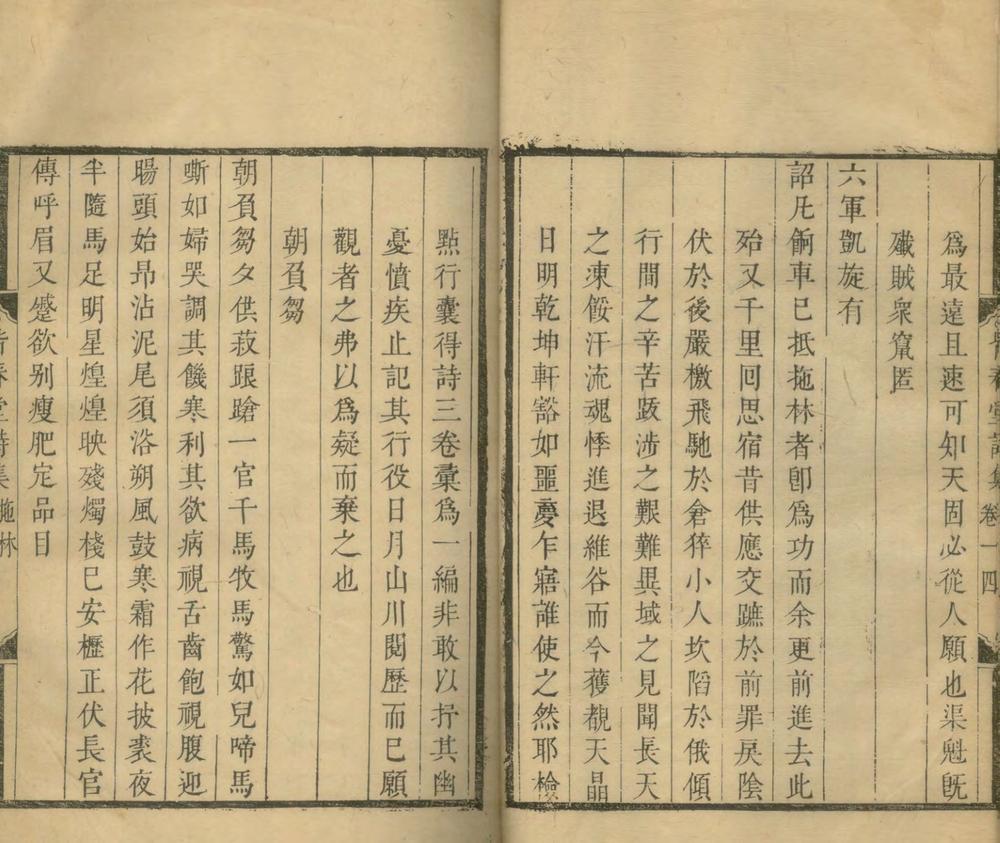 爲最遠且速可知天固必從人願也渠魁既
殲賊衆竄匿
六軍凱旋有
詔凡餉車已抵拖林者卽爲功而余更前進去此
殆又千里回思宿昔供應交蹠於前罪戾陰
伏於後嚴檄飛馳於倉猝小人坎陷於俄傾
行間之辛苦跋涉之艱難異域之見聞長天
之凍餒汗流魂悸進退維谷而今獲覩天晶
日明乾坤軒豁如噩夢乍寤誰使之然耶檢
點行囊得詩三卷彙爲一編非敢以抒其幽
憂憤疾止記其行役日月山川閱歷而已願
觀者之弗以爲疑而棄之也
朝負芻
朝負芻夕供菽踉蹌一官千馬牧馬驚如兒啼馬
嘶如婦哭調其饑寒利其欲病視舌齒飽視腹迎
暘頭始昂沾泥尾須浴朔風鼓寒霜作花披裘夜
半隨馬足明星煌煌映殘燭棧已安櫪正伏長官
傳呼眉又蹙欲别瘦肥定品目
春堂詩集
卷一
四
春堂詩集
拖林